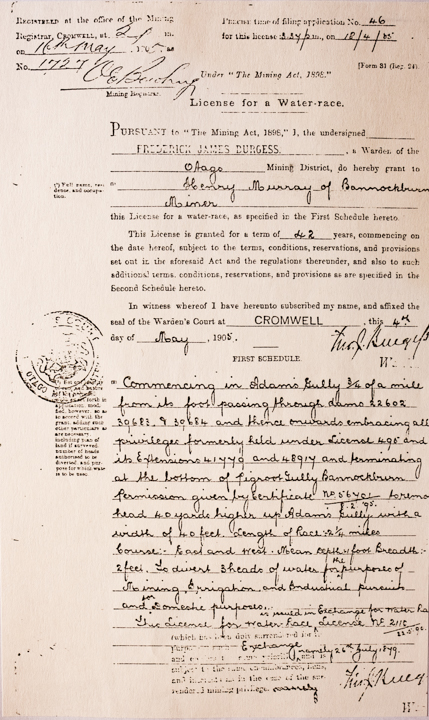 REGISTERED at the office of the Mining
Registrar, CROMWELL, at 2 p m.
on 16th May, 1905.
No. 1727
Mining Registrar.
PRECISE time of filing application No. 46
for this license 3.27 p.m., on 18/4/05
Under "The Mining Act, 1898."
[Form 31 (Reg. 24).
License for a Water-race.
PURSUANT to "The Mining Act, 1898," I, the undersigned
FREDERICK JAMES BURGESS, a Warden of the
Otago Mining District, do hereby grant to
(1) Full name, residence, and occupation.
Henry Murray of Bannockburn
Miner
this License for a water-race, as specified in the First Schedule hereto.
This License is granted for a term of 42 years, commencing on
the date hereof, subject to the terms, conditions, reservations, and provisions
set out in the aforesaid Act and the regulations thereunder, and also to such
additional terms, conditions, reservations, and provisions as are specified in the
Second Schedule hereto.
In witness whereof I have hereunto subscribed my name, and affixed the
seal of the Warden's Court at CROMWELL, this 4th
day of May, 1905.
FIRST SCHEDULE.
Commencing in Adams Gully 3/4 of a mile
from its foot passing through dams 22602
30683 & 30684 and thence onwards embracing all
privileges formerly held under License 495 and
its Extensions 41779 and 48917 and terminating
at the bottom of Pigroot Gully Bannockburn
Permission given by Certificate No 56701 to remove
8.2.95.
head 40 yards higher up Adams Gully with a
width of 40 feet. Length of Race: 2 1/4 miles
Course:- East and West. Mean depth 1 foot Breadth:-
2 feet. To divert 3 heads of water for the purposes of
Mining, Irrigation and Industrial pursuits
and for Domestic purposes.
is issued in Exchange for Water Race
The License for Water Race License No 2110
(which has been duly surrendered for
Exchange namely 26th July 1879.
mining privilege namely